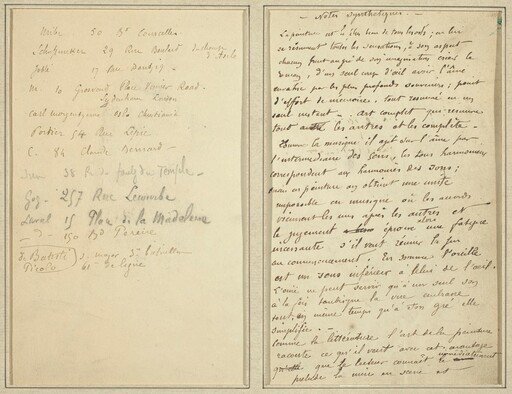 50 Bd Courcelles
Schuffnecker 29 Rue Boulard
17 Rue
M. 10 Place Manor Road
Sydenham London
Carl
Portier 54 Rue Lepic
C. 84 Claude Bernard
38 R du faubg du Temple
257 Rue Lecourbe
Laval 15 Place de la Madeleine
150 Bd Pereire
de Batisti Sr major 3e bataillon
Picolo 61e de ligne
- Notes Synthétiques -
La peinture est le plus beau de tous les arts; en lui
se résument toutes les sensations, à son aspect
chacun peut au gré de son imagination créer le
roman, d'un seul coup d'œil avoir l'âme
envahie par les plus profonds souvenirs; point
d'effort de mémoire, tout résumé en un
seul instant. - Art complet qui résume
tous les autres et les complète. -
Comme la musique il agit sur l'âme par
l'intermédiaire des sens, les tons harmonieux
correspondant aux harmonies des sons;
mais en peinture on obtient une unité
impossible en musique où les accords
viennent les uns après les autres et
le jugement éprouve alors une fatigue
incessante s'il veut réunir la fin
au commencement. En somme l'oreille
est un sens inférieur à celui de l'œil.
L'ouïe ne peut servir qu'à un seul son
à la fois tandis que la vue embrasse
tout, en même temps qu'à son gré elle
simplifie. -
Comme la littérature l'art de la peinture
raconte ce qu'il veut avec cet avantage
que le lecteur connaît immédiatement
le prélude la mise en scène et